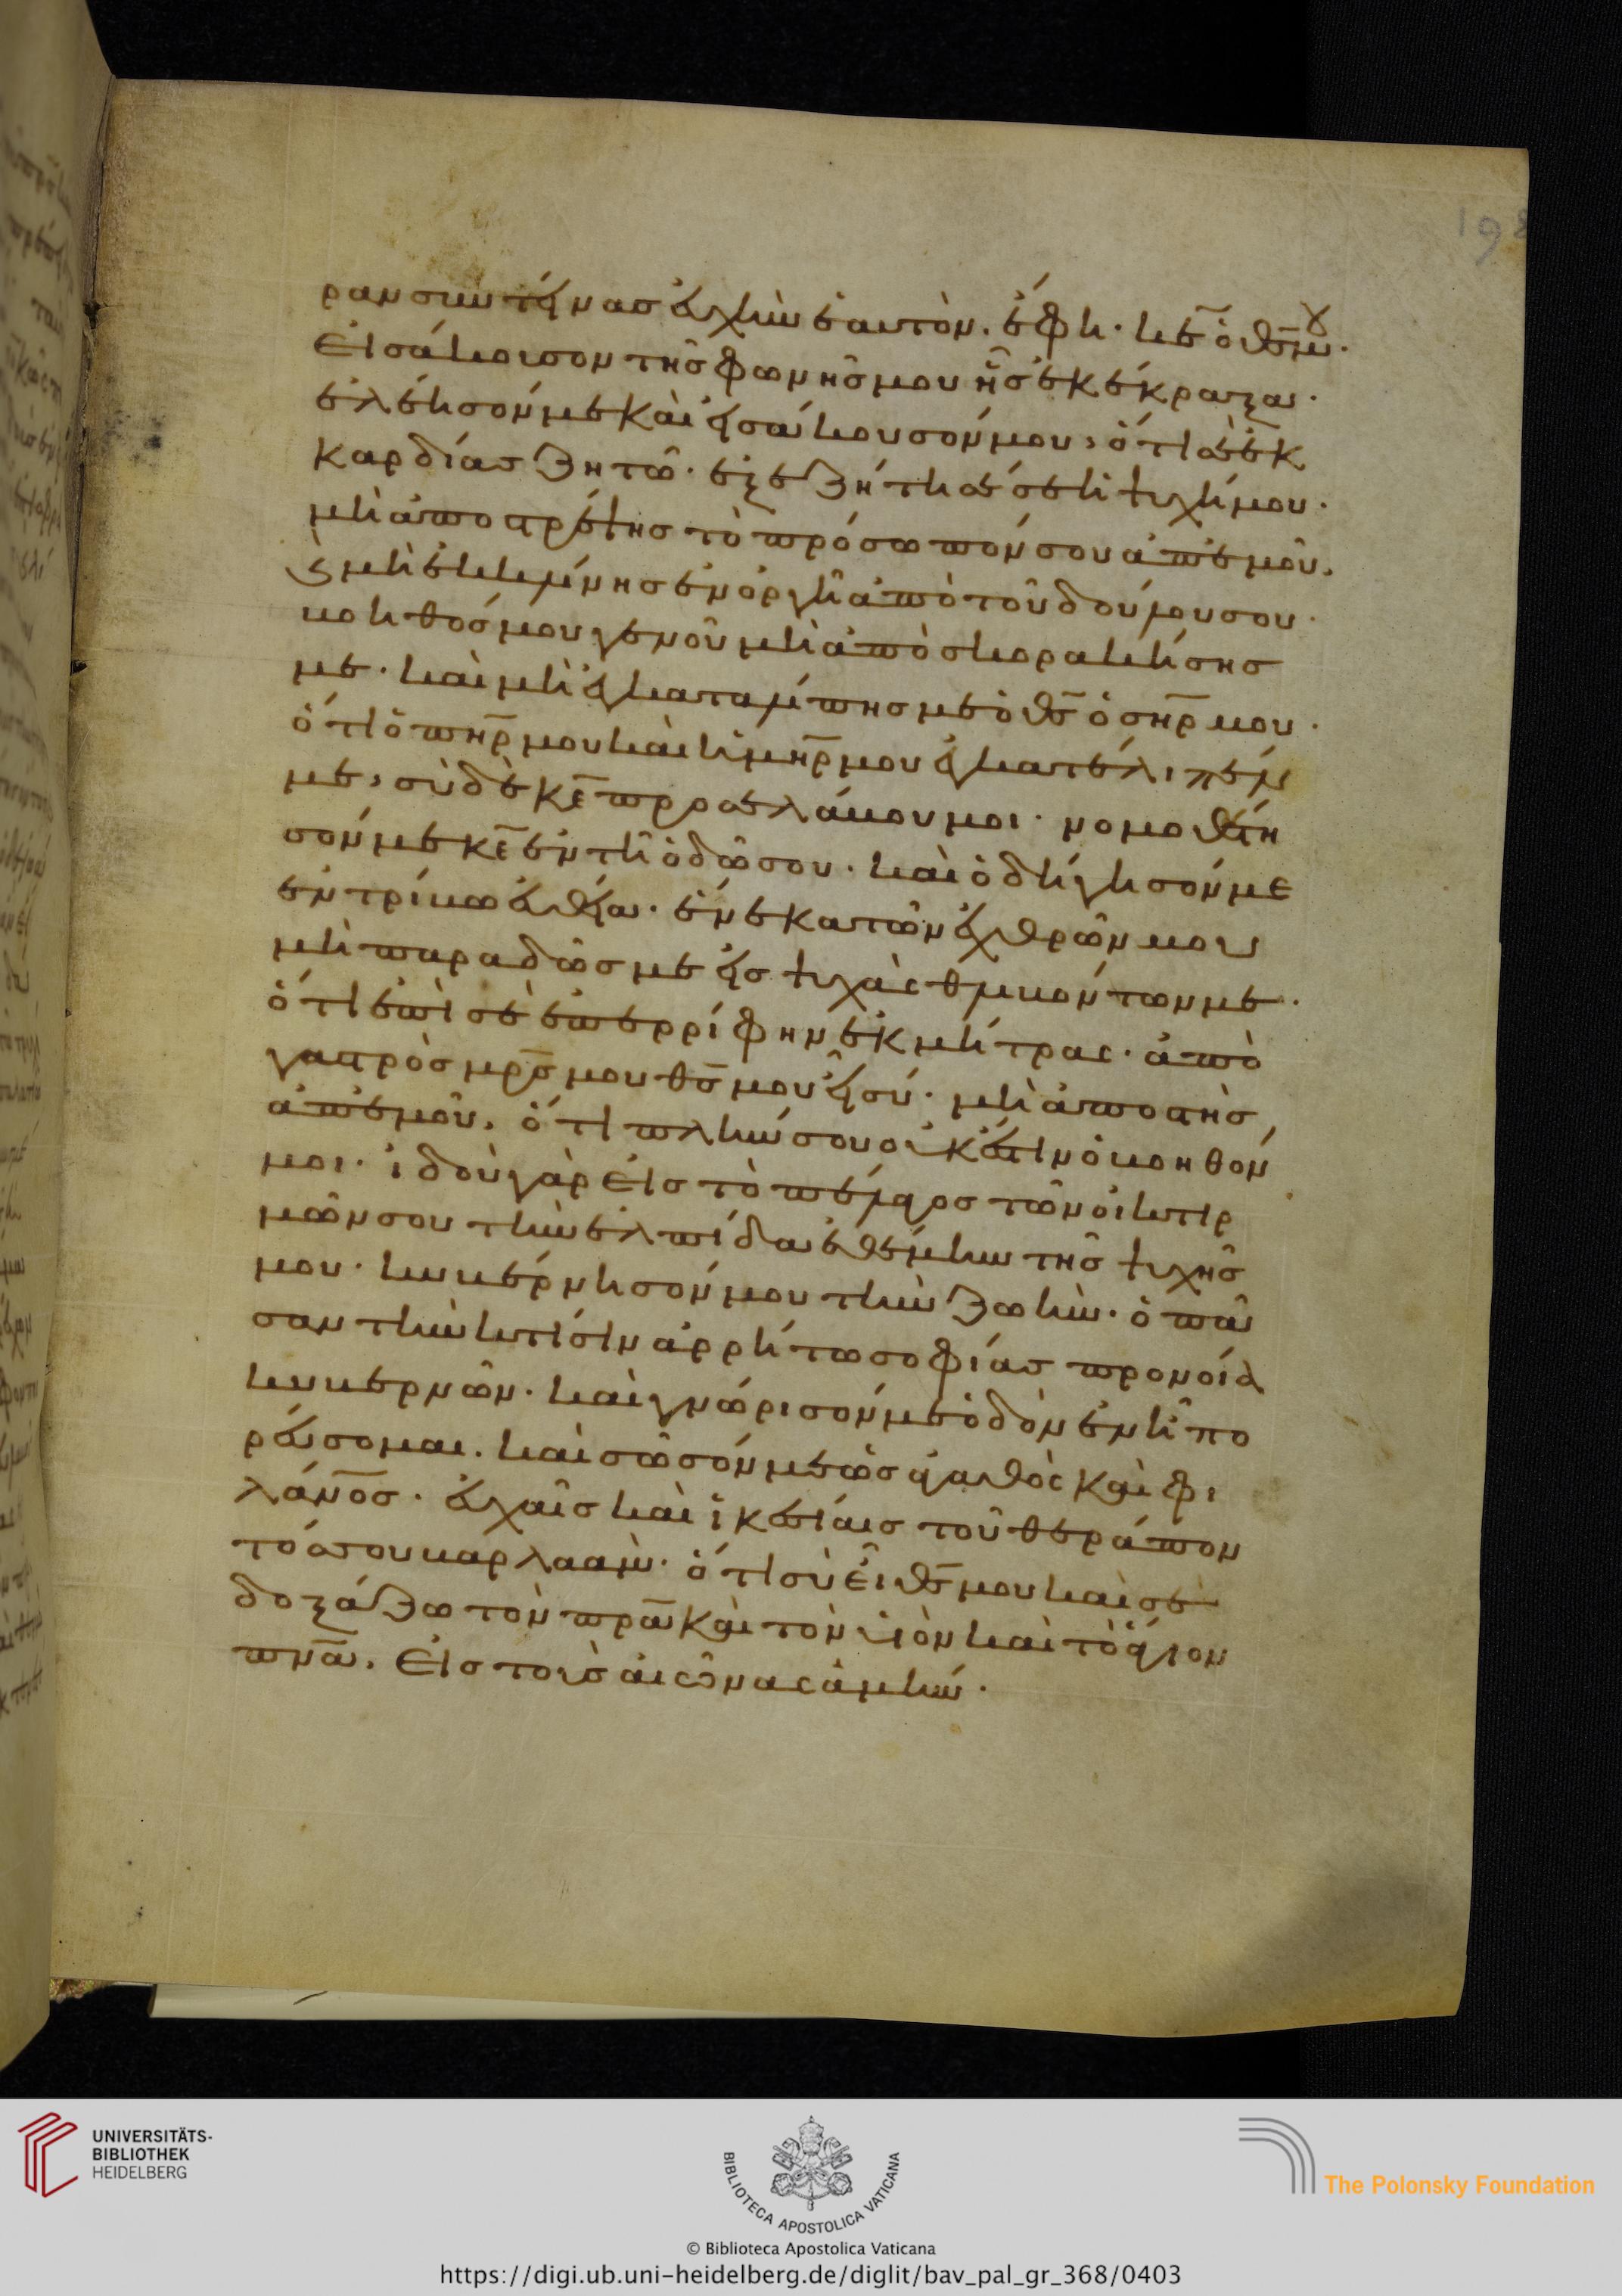 ραν συντείνας εὐχὴν ἑαυτόν. ἔφη· κε̅ ὁ θς̅ μου·
εἰσάκουσον τῆς φωνῆς μου ἧς ἐκέκραξα·
ἐλέησόν με καὶ εἰσάκουσόν μου, ὅτι σὲ ἐκ
καρδίας ζητῶ· ἐξεζήτησέ σε ἡ ψυχή μου·
μὴ ἀποστρέψης τὸ πρόσωπόν σου ἀπ' ἐμοῦ.
καὶ μὴ ἐκκλίνης ἐν ὀργῆ ἀπὸ τοῦ δούλου σου·
βοηθός μου γενοῦ μὴ ἀποσκορακίσης
με· καὶ μὴ ἐγκαταλίπης με ὁ θς̅ ὁ σηρ̅ μου·
ὅτι ὁ πηρ̅ μου καὶ ἡ μηρ̅ μου ἐγκατέλιπέν
με, σὺ δὲ κε̅ προσλάβου μοι· νομοθέτη
σόν με κε̅ ἐν τῆ ὁδῶ σου· καὶ ὁδήγησόν με
ἐν τρίβω εὐθεία· ἕνεκα τῶν ἐχθρῶν μου
μὴ παραδῶς με εἰς ψυχὰς θλιβόντων με·
ὅτι ἐπὶ σὲ ἐπερρίφην ἐκ μήτρας· ἀπὸ
γαστρὸς μρς̅ μου θς̅ μου εἶ σύ· μὴ ἀποστῆς
ἀπ' ἐμοῦ, ὅτι πλήν σου οὐκ ἔστιν ὁ βοηθῶν
μοι· ἰδοὺ γὰρ εἰς τὸ πέλαγος τῶν οἰκτιρ
μῶν σου τὴν ἐλπίδα ἐθέμην τῆς ψυχῆς
μου· κυβέρνησόν μου τὴν ζωήν· ὁ πᾶ
σαν τὴν κτίσιν ἀρρήτω σοφίας προνοία
κυβερνῶν· καὶ γνώρισόν με ὁδὸν ἐν ἧ πο
ρεύσομαι. καὶ σῶσόν με ὡς ἀγαθὸς καὶ φι
λάνο̅ς· εὐχαῖς καὶ ἱκεσίαις τοῦ θεράπον
τός σου βαρλαάμ· ὅτι σὺ εἶ θς̅ μου καὶ σὲ
δοξάζω τὸν πρα̅ καὶ τὸν υἱὸν καὶ τὸ ἅγιον
πνα̅. εἰς τοὺς αἰῶνας ἀμήν·
UNIVERSITÄTS-
BIBLIOTHEK
HEIDELBERG
BIBLIOTECA APOSTOLICA VATICANA
The Polonsky Foundation
© Biblioteca Apostolica Vaticana
https://digi.ub.uni-heidelberg.de/diglit/bav_pal_gr_368/0403